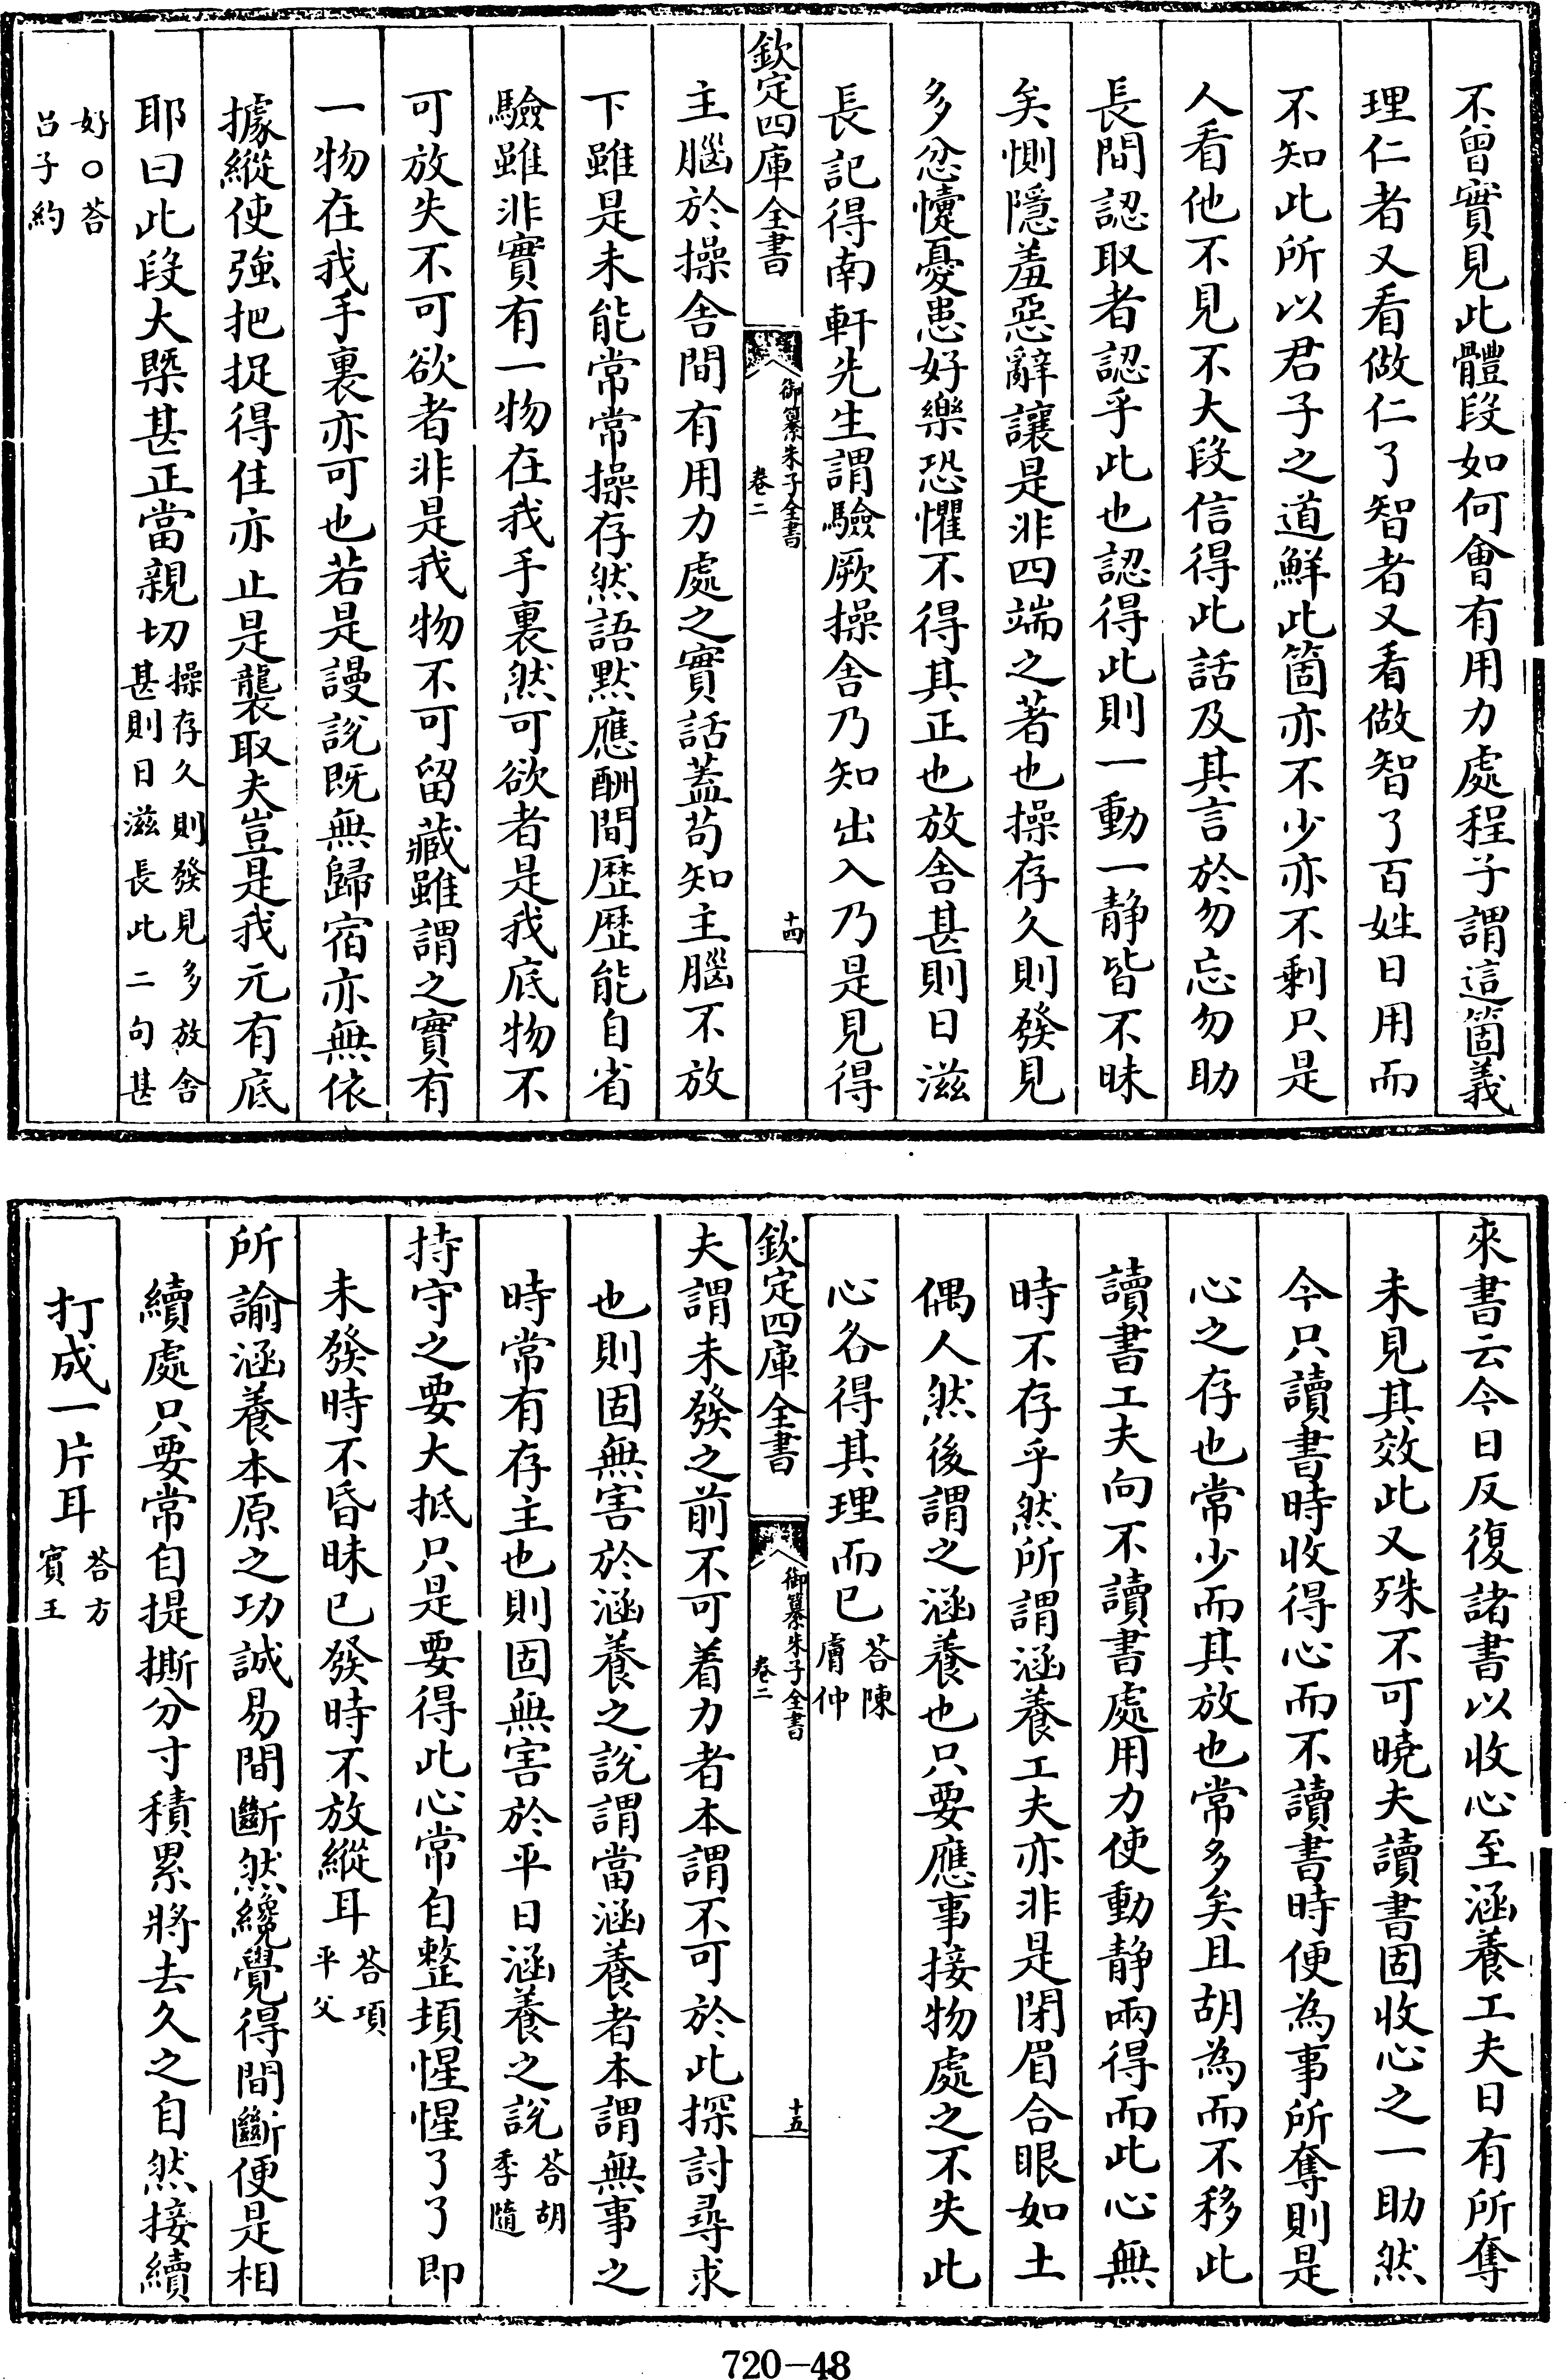 不曾實見此體段如何會有用力處程子謂這箇義
理仁者又看做仁了智者又看做智了百姓日用而
不知此所以君子之道鮮此箇亦不少亦不剩只是
人看他不見不大段信得此話及其言於勿忘勿助
長間認取者認乎此也認得此則一動一靜皆不昧
矣惻隱羞惡辭讓是非四端之著也操存久則發見
多忿懥憂患好樂恐懼不得其正也放舍甚則日滋
長記得南軒先生謂驗厥操舍乃知出入乃是見得
欽定四庫全書
御纂朱子全書
卷二
十四
主腦於操舍間有用力處之實話葢苟知主腦不放
下雖是未能常常操存然語默應酬間歷歷能自省
驗雖非實有一物在我手裏然可欲者是我底物不
可放失不可欲者非是我物不可留藏雖謂之實有
一物在我手裏亦可也若是謾說既無歸宿亦無依
據縱使強把捉得住亦止是襲取夫豈是我元有底
耶曰此段大槩甚正當親切操存久則發見多放舍
甚則日滋長此二句甚
好○荅
呂子約
來書云今日反復諸書以收心至涵養工夫日有所奪
未見其效此又殊不可曉夫讀書固收心之一助然
今只讀書時收得心而不讀書時便為事所奪則是
心之存也常少而其放也常多矣且胡為而不移此
讀書工夫向不讀書處用力使動靜兩得而此心無
時不存乎然所謂涵養工夫亦非是閉眉合眼如土
偶人然後謂之涵養也只要應事接物處之不失此
心各得其理而已荅陳
膚仲
欽定四庫全書
御纂朱子全書
卷二
十五
夫謂未發之前不可着力者本謂不可於此探討尋求
也則固無害於涵養之說謂當涵養者本謂無事之
時常有存主也則固無害於平日涵養之說荅胡
季隨
持守之要大抵只是要得此心常自整頓惺惺了了即
未發時不昏昧已發時不放縱耳荅項
平父
所諭涵養本原之功誠易間斷然纔覺得間斷便是相
續處只要常自提撕分寸積累將去久之自然接續
打成一片耳荅方
賓王
720-48